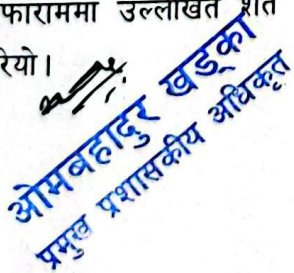 फाराममा उल्लेखित शर्त
रियो।
ओमबहादुर खड्का
प्रमुख प्रशासकीय अधिकृत